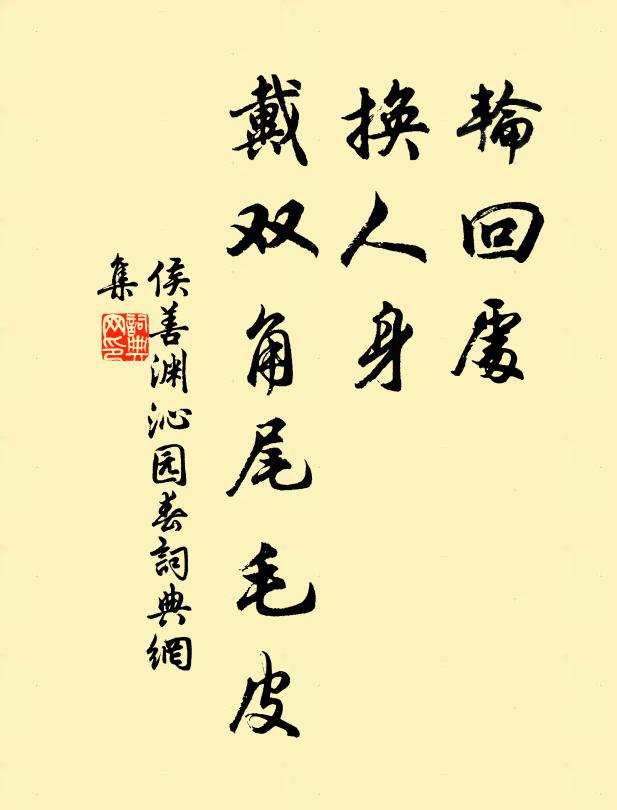 輪回處
換人身
戴双角尾毛皮
侯善渊沁园春詞典網
集
詞典
网印